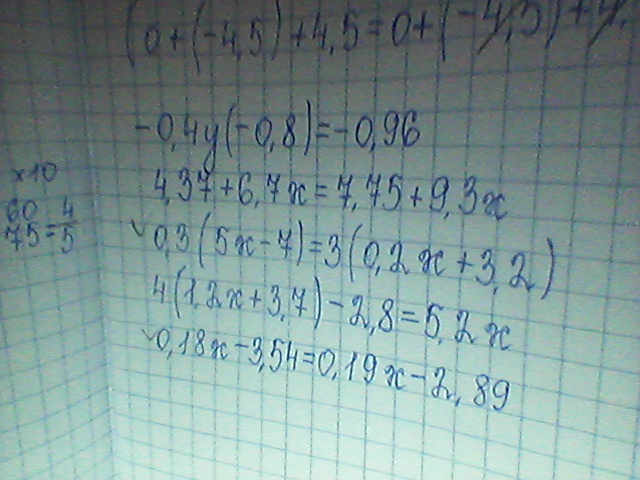 (0+(-4,5)+4,5=0+(-4,5)+4,
-0,4y(-0,8)=-0,96
×10
4,37+6,7x=7,75+9,3x
60 4
75=5
0,3(5x-7)=3(0,2x+3,2)
4(1,2x+3,7)-2,8=5,2x
0,18x-3,54=0,19x-2,89